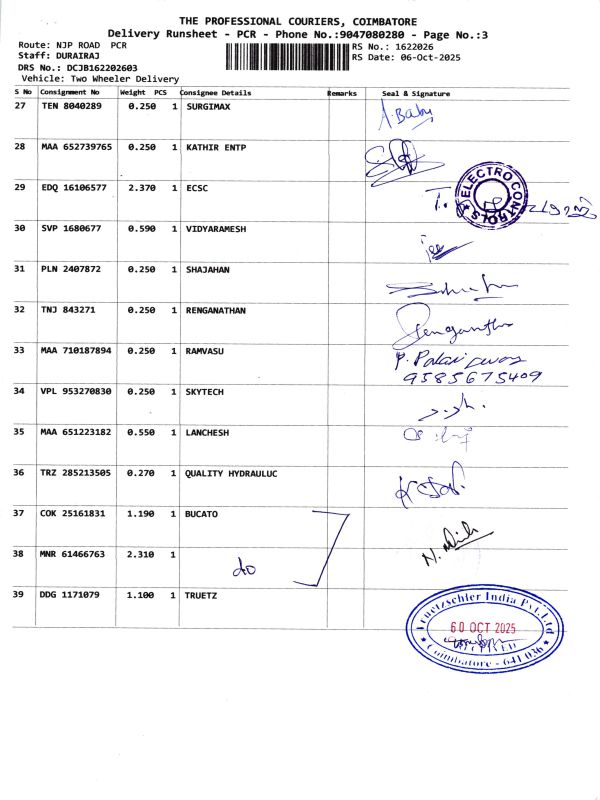 THE PROFESSIONAL COURIERS, COIMBATORE
Delivery Runsheet - PCR - Phone No.:9047080280 - Page No.:3
Route: NJP ROAD PCR
RS No.: 1622026
Staff: DURAIRAJ
RS Date: 06-Oct-2025
DRS No.: DCJB162202603
Vehicle: Two Wheeler Delivery
S No Consignment No Weight PCS Consignee Details Remarks Seal & Signature
27 TEN 8040289 0.250 1 SURGIMAX A. Baby
28 MAA 652739765 0.250 1 KATHIR ENTP
29 EDQ 16106577 2.370 1 ECSC
ELECTRO CONTROLS
30 SVP 1680677 0.590 1 VIDYARAMESH
31 PLN 2407872 0.250 1 SHAJAHAN
32 TNJ 843271 0.250 1 RENGANATHAN Renganathan
33 MAA 710187894 0.250 1 RAMVASU
9585675409
34 VPL 953270830 0.250 1 SKYTECH
35 MAA 651223182 0.550 1 LANCHESH
36 TRZ 285213505 0.270 1 QUALITY HYDRAULUC
37 COK 25161831 1.190 1 BUCATO
38 MNR 61466763 2.310 1 do
39 DDG 1171079 1.100 1 TRUETZ
Truetzschler India Pvt. Ltd
60 OCT 2025
Coimbatore - 641 036